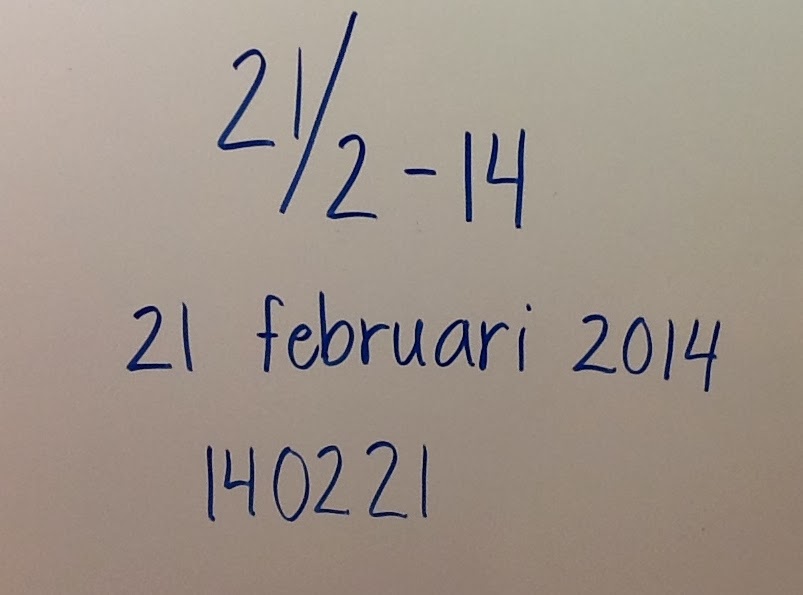 21/2-14
21 februari 2014
140221